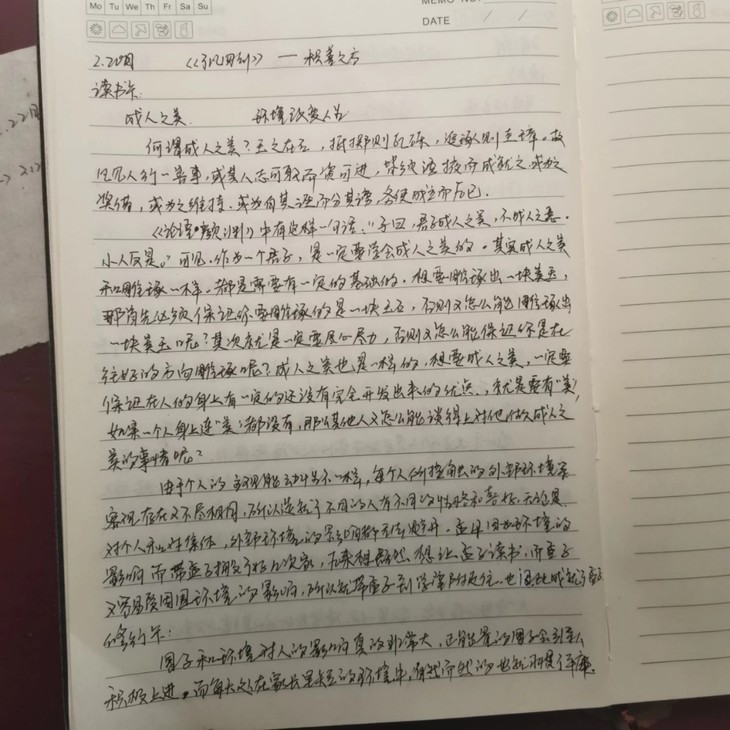 Mo Tu We Th Fr Sa Su
MEMO NO.
DATE / /
2.22日 《了凡四训》—积善之方
读书乐:
成人之美 环境改变人生
何谓成人之美？玉之在石，抵掷则瓦砾，追琢则圭璋。故
凡见人行一善事，或其人志可取而资可进，皆须诱掖而成就之。或为之
奖借，或为之维持。或为白其诬而分其谤，务使成立而后已。
《论语·颜渊》中有这样一句话："子曰，君子成人之美，不成人之恶。
小人反是。"可见，作为一个君子，是一定要学会成人之美的。其实成人之美
和雕琢一样。都是需要有一定的基础的。想要雕琢出一块美玉，
那首先必须保证你要雕琢的是一块玉石，否则又怎么能雕琢出
一块美玉呢？其次就是一定要尽心尽力，否则又怎么能保证你是在
往好的方向雕琢呢？成人之美也是一样的，想要成人之美，一定要
保证在人的身上有一定的还没有完全开发出来的优点，就是要有"美"，
如果一个人身上连"美"都没有，那么其他人又怎么能谈得上对他做成人之
美的事情呢？
由于个人的主观能动性不一样，每个人所接触的外部环境
客观存在又不尽相同，所以造就了不同的人有不同的性格和喜好。无论是
对个人和对集体，外部环境的影响都无法避开。孟母因为环境的
影响而带孟子搬了好几次家，
又容易受周围环境的影响，所以就带孟子到学堂附近住。也因此成就了孟子
修行乐:
圈子和环境对人的影响真的非常大，正能量的圈子会引导人
积极上进。而每天处在家长里短的环境中，自然而然的也就